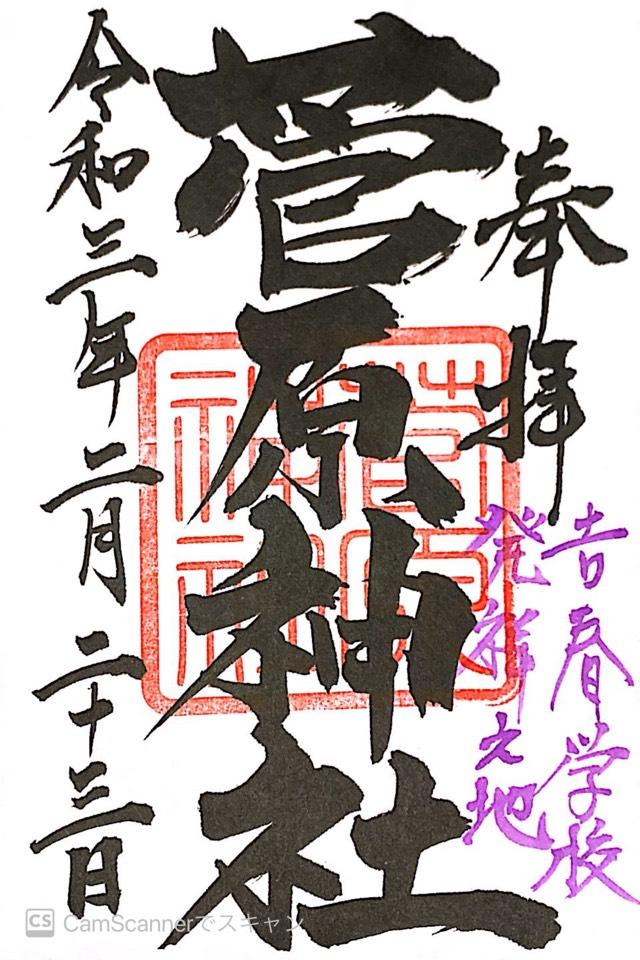 奉拝
吉春学校
発祥之地
菅原神社
菅原神社
令和三年二月二十三日
CS CamScannerでスキャン